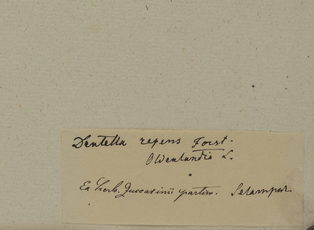 Dentella repens Forst.
Oldenlandia L.
Ex herb. Zuccarinii partim. Serampur.